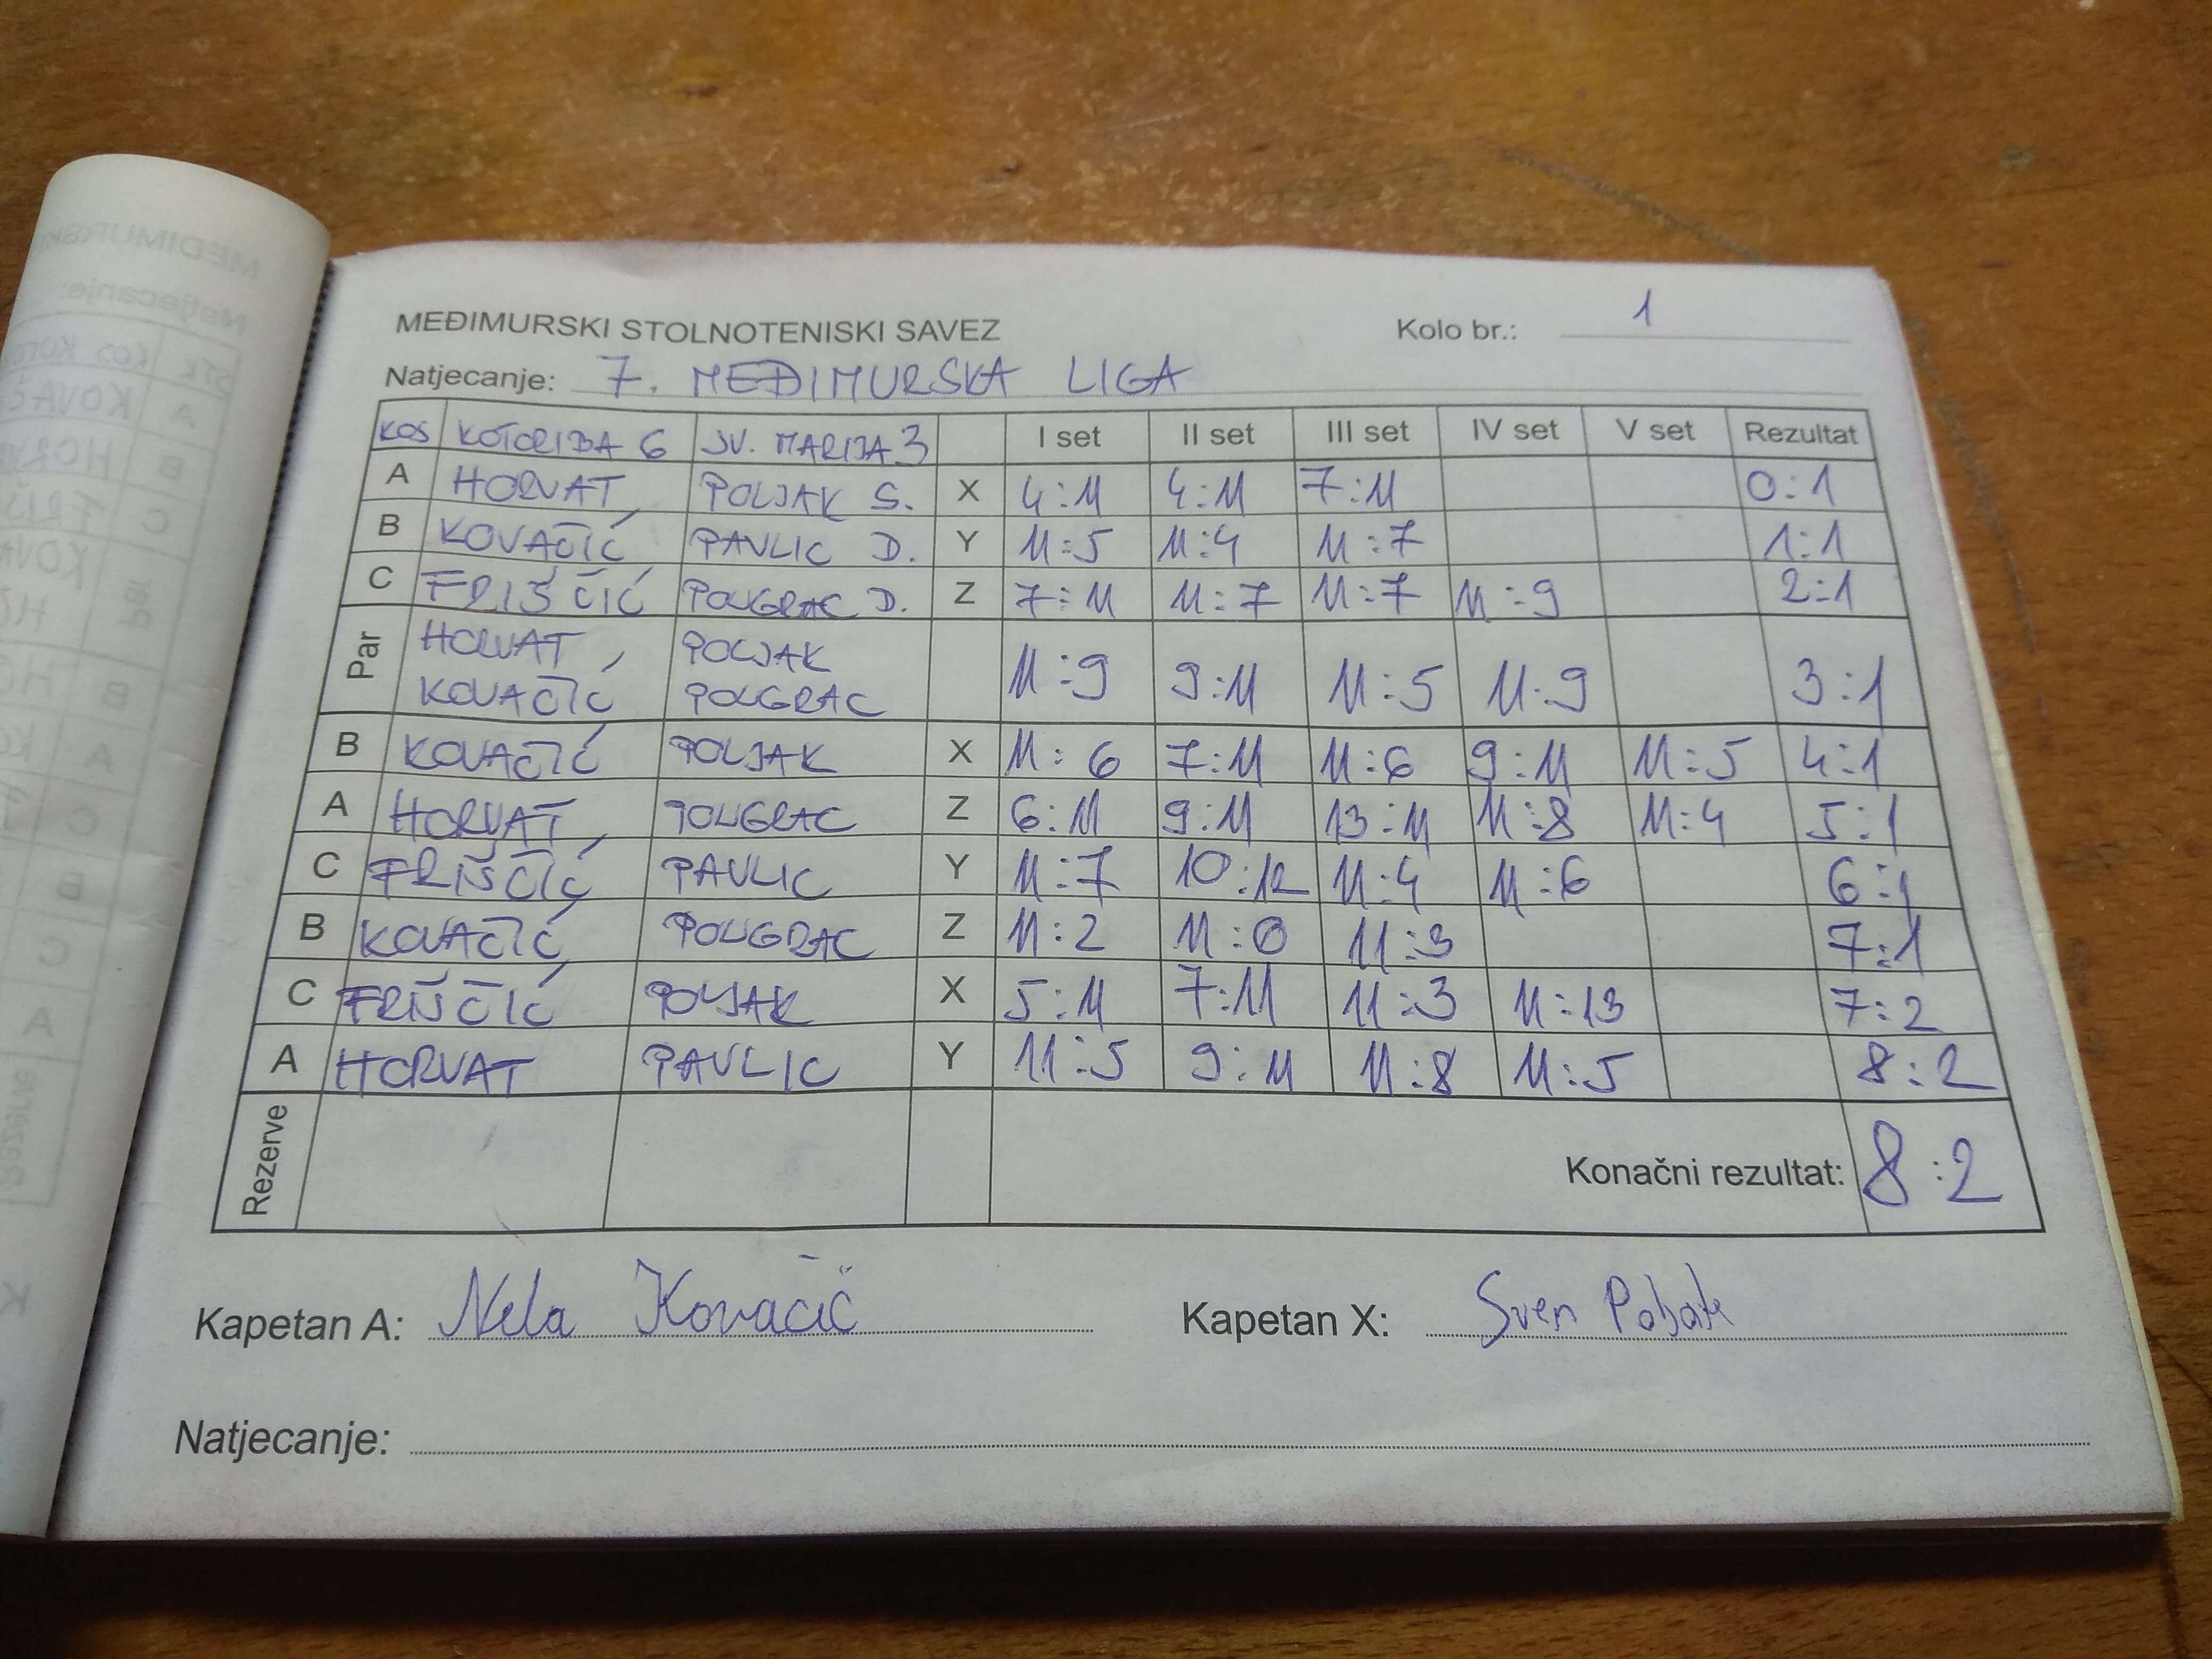 MEĐIMURSKI STOLNOTENISKI SAVEZ Kolo br.: 1
Natjecanje: 7. MEĐIMURSKA LIGA
KOS KOTORIBA 6 SV. MARIJA 3 I set II set III set IV set V set Rezultat
A HORVAT POLJAK S. X 4:11 4:11 7:11 0:1
B KOVAČIĆ PAVLIC D. Y 11:5 11:4 11:7 1:1
C FRIŠČIĆ POLJGRAC D. Z 7:11 11:7 11:7 11:9 2:1
Par HORVAT, POLJAK
KOVAČIĆ POLJGRAC 11:9 9:11 11:5 11:9 3:1
B KOVAČIĆ POLJAK X 11:6 7:11 11:6 9:11 11:5 4:1
A HORVAT POLJGRAC Z 6:11 9:11 13:11 11:8 11:4 5:1
C FRIŠČIĆ PAVLIC Y 11:7 10:12 11:4 11:6 6:1
B KOVAČIĆ POLJGRAC Z 11:2 11:0 11:3 7:1
C FRIŠČIĆ POLJAK X 5:11 7:11 11:3 11:13 7:2
A HORVAT PAVLIC Y 11:5 9:11 11:8 11:5 8:2
Rezerve Konačni rezultat: 8:2
Kapetan A: Nela Kovačić Kapetan X: Sven Poljak
Natjecanje: